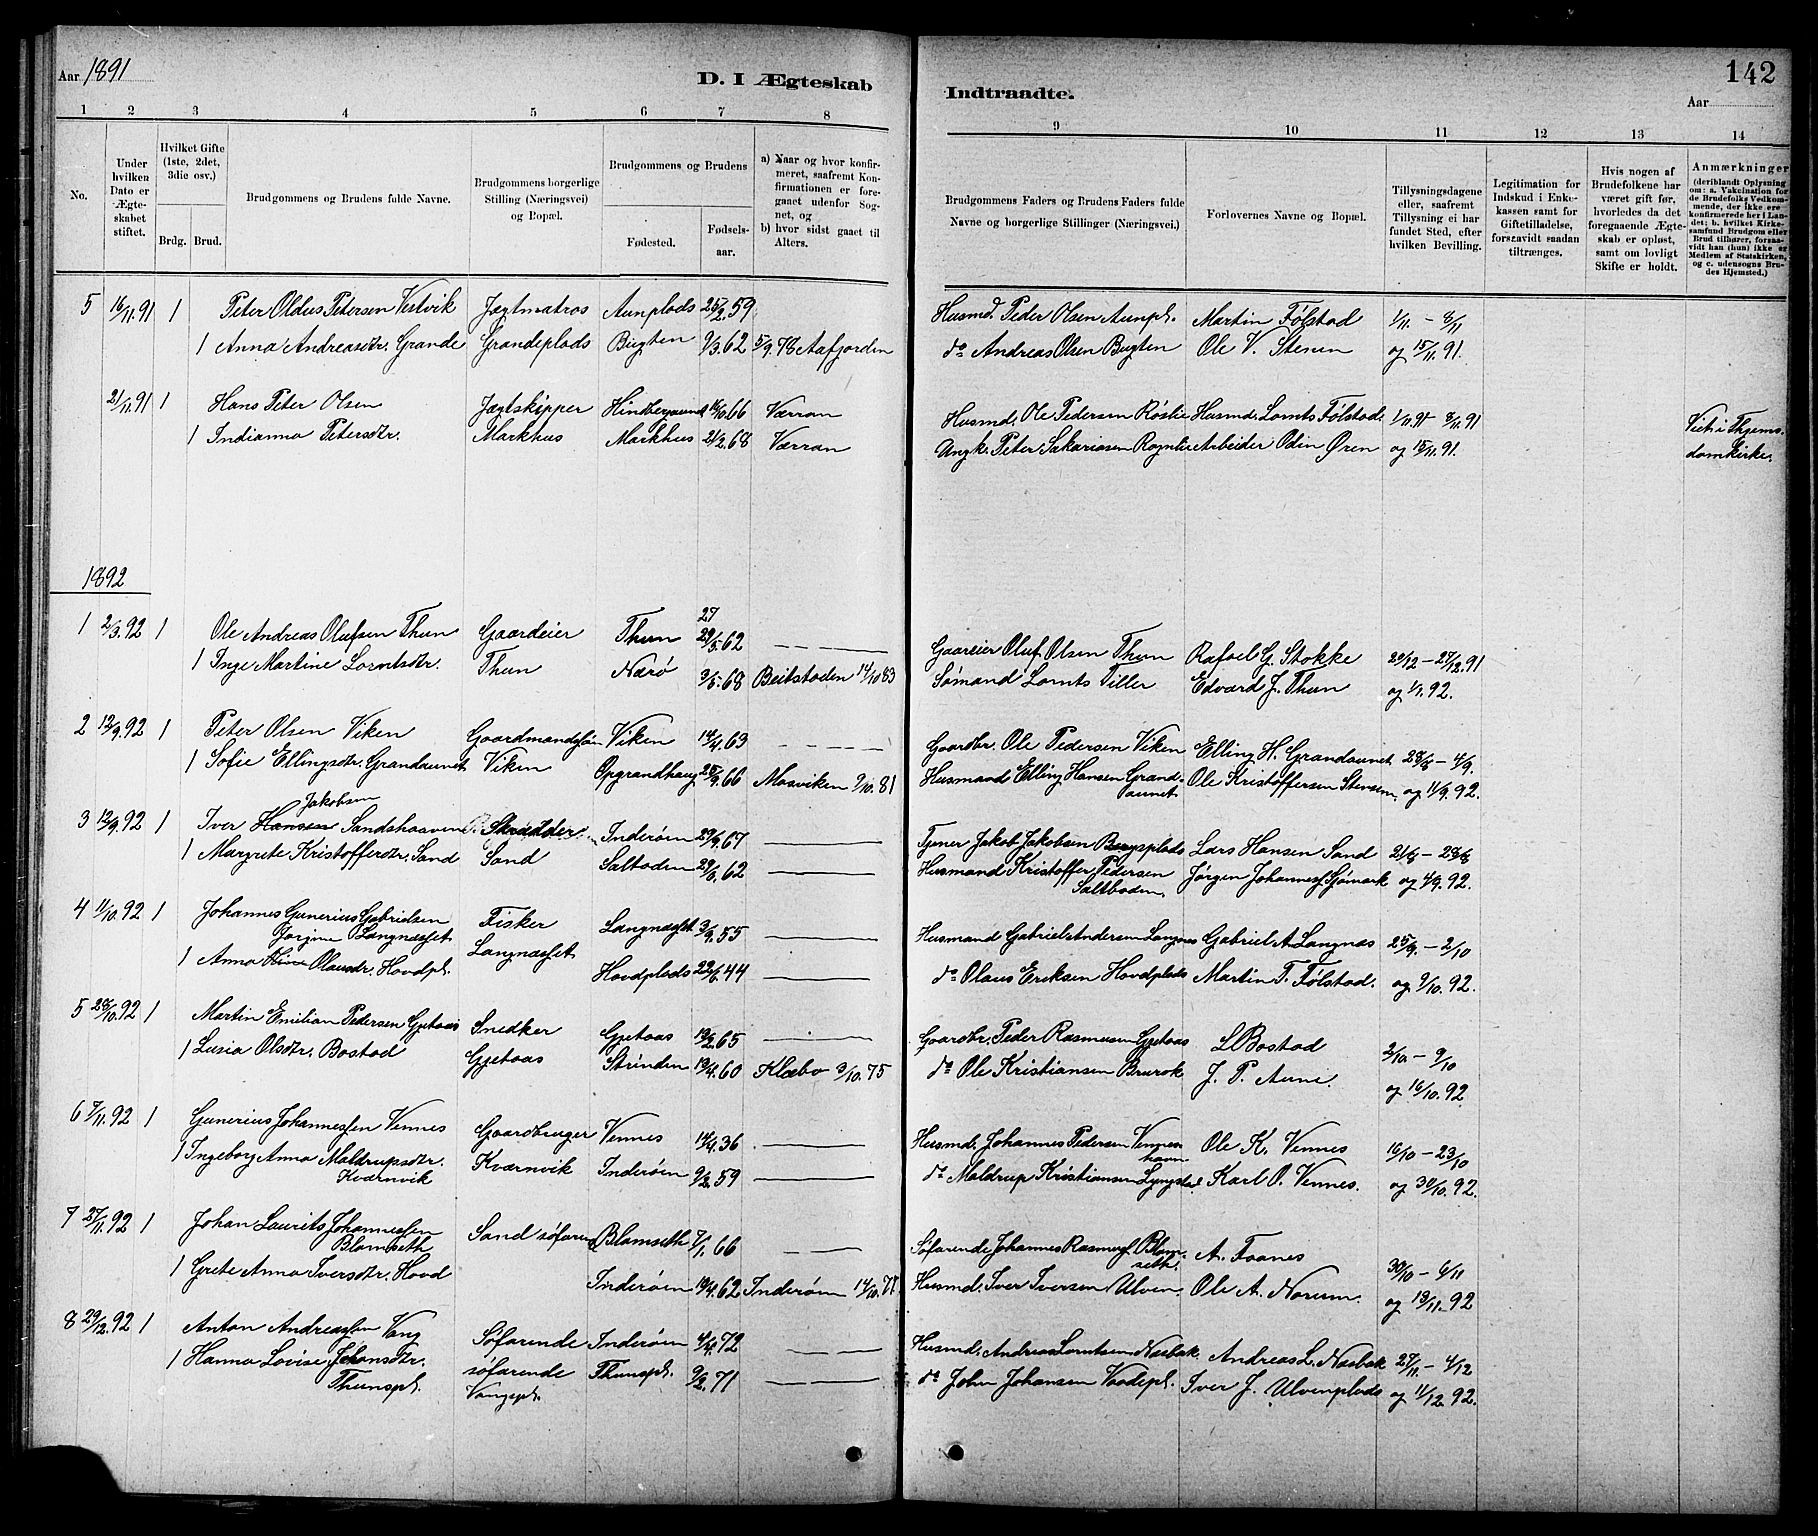 Aar 1891
D. I Ægteskab
1 2 3 4 5 6 7 8
No.
Under hvilken Dato er Ægteskabet stiftet.
Hvilket Gifte (1ste, 2det, 3die osv.)
Brdg. Brud.
Brudgommens og Brudens fulde Navne.
Brudgommens borgerlige Stilling (Næringsvei) og Bopæl.
Brudgommens og Brudens
Fødested.
Fødselsaar.
a) Naar og hvor konfirmeret, saafremt Konfirmationen er foregaaet udenfor Sognet, og
b) hvor sidst gaaet til Alters.
5 16/11.91 1 Peter Oldus Petersen Vestvik Jægtmatros Aunplads 25/2.59
1 Anna Andreasdtr. Grande Grandeplads Bugten 9/3.62 5/9.78 Aafjorden
21/11.91 1 Hans Peter Olsen Jægtskipper 66 Værran
1 Indianna Petersdtr. Markhus Markhus 21/2.68 Værran
1892
1 2/3.92 1 Ole Andreas Olufsen Thun Gaardeier Thun 27 29/5.62
1 Inge Martine Lorntsdtr. Thun Nærø 3/5.68 Beitstaden 14/10 83
2 12/9.92 1 Peter Olsen Viken Gaardmandssøn Viken 14/4.63
1 Sofie Ellingsdtr. Grandaunet Viken Opgrandhaug 25/9.66 Mosviken 9/10.81
Jakobsen
3 12/9.92 1 Iver Hansen Sandshaaven Skrædder Inderøen 29/9.67
1 Margrete Kristofferdtr. Sand Sand Saltboden 29/6.62
4 11/10.92 1 Johannes Gunerius Gabrielsen Langnæsset Fisker Langnæsset 3/9.55
Jorgine
1 Anna Oleusdtr. Hovdpl. Langnæsset Hovdplads 22/6.44
5 28/10.92 1 Martin Emilian Pedersen Gjetaas Snedker Gjetaas 19/2.65
1 Lusia Olsdtr. Bostad Gjetaas Strinden 19/4.60 Klæbo 3/10.75
6 7/11.92 1 Gunerius Johannessen Vennes Gaardbruger Vennes 14/4.36
1 Ingeborg Anna Maldrupsdtr. Kværnvik Kværnvik Inderøen 9/2.59
7 27/11.92 1 Johan Laurits Johannessen Blomseth Sand søfarende Blomseth 7/1.66
1 Grete Anna Iversdtr. Hovd Inderøen 19/4.62 Inderøen 14/10.77
8 29/12.92 1 Anton Andreassen Vang Søfarende Inderøen 4/4.72
1 Hanna Lovise Johansdtr. Thunspl. søfarende Vangspl. Thunspl. 9/2.71
142
Indtraadte.
Aar
9 10 11 12 13 14
Brudgommens Faders og Brudens Faders fulde Navne og borgerlige Stillinger (Næringsvei.)
Forlovernes Navne og Bopæl.
Tillysningsdagene eller, saafremt Tillysning ei har fundet Sted, efter hvilken Bevilling.
Legitimation for Indskud i Enkekassen samt for Giftetilladelse, forsaavidt saadan tiltrænges.
Hvis nogen af Brudefolkene har været gift før, hvorledes da det foregaaende Ægteskab er opløst, samt om lovligt Skifte er holdt.
Anmærkninger (deriblandt Oplysning om: a. Vakcination for de Brudefolks Vedkommende, der ikke ere konfirmerede her i Landet; b. hvilket Kirkesamfund Brudgom eller Brud tilhører, forsaavidt han (hun) ikke er Medlem af Statskirken, og c. udensogns Brudes Hjemsted.)
Husmd. Peder Olsen Aunpl. Martin Følstad 1/11. – 8/11
do Andreas Olsen Bugten Ole V. Stenen og 15/11.91.
Husmd. Ole Pedersen Røslie Husmd. Lornts Følstad 1/11.91 – 8/11.91 Viet i Thjems.
Peter Sakariasen Arbeider Odin Øren og 15/11.91. domkirke.
Gaardeier Oluf Olsen Thun Rafael G. Stokke 20/12 – 27/12.91
Sømand Lornts Tiller Edvard J. Thun og 1/1.92.
Gaardbr. Ole Pedersen Viken Elling H. Grandaunet 28/8 – 4/9.
Husmand Elling Hansen Grandaunet Ole Kristoffersen Stensen. og 11/9.92.
Tjener Jakob Jakobsen Bergsplads Lars Hansen Sand 21/8 – 28/8
Husmand Kristoffer Pedersen Saltboden. Jørgen Johannes Sjømark og 4/9.92.
Husmand Gabriel Andersen Langnes Gabriel A. Langnæs 25/9. – 2/10
do Olaus Eriksen Hovdplads Martin T. Følstad. og 9/10.92.
Gaardbr. Peder Rasmusen Gjetaas L Bostad 2/10 – 9/10
do Ole Kristiansen Brurok J. P. Aune. og 16/10.92.
Husmd. Johannes Pedersen Venneshavn Ole K. Vennes 16/10 – 23/10
do Maldrup Kristiansen Lyngstad Karl O. Vennes. og 30/10.92.
Søfarende Johannes Rasmus. Blomseth. A. Foanes 30/10 – 6/11
Husmd. Iver Iversen Ulven. Ole A. Norum. og 13/11.92
Husmd. Andreas Lorntsen Næsbak Andreas L. Næsbak 27/11. – 4/12
do John Johansen Vaadepl. Iver J. Ulvenplads og 11/12.92.